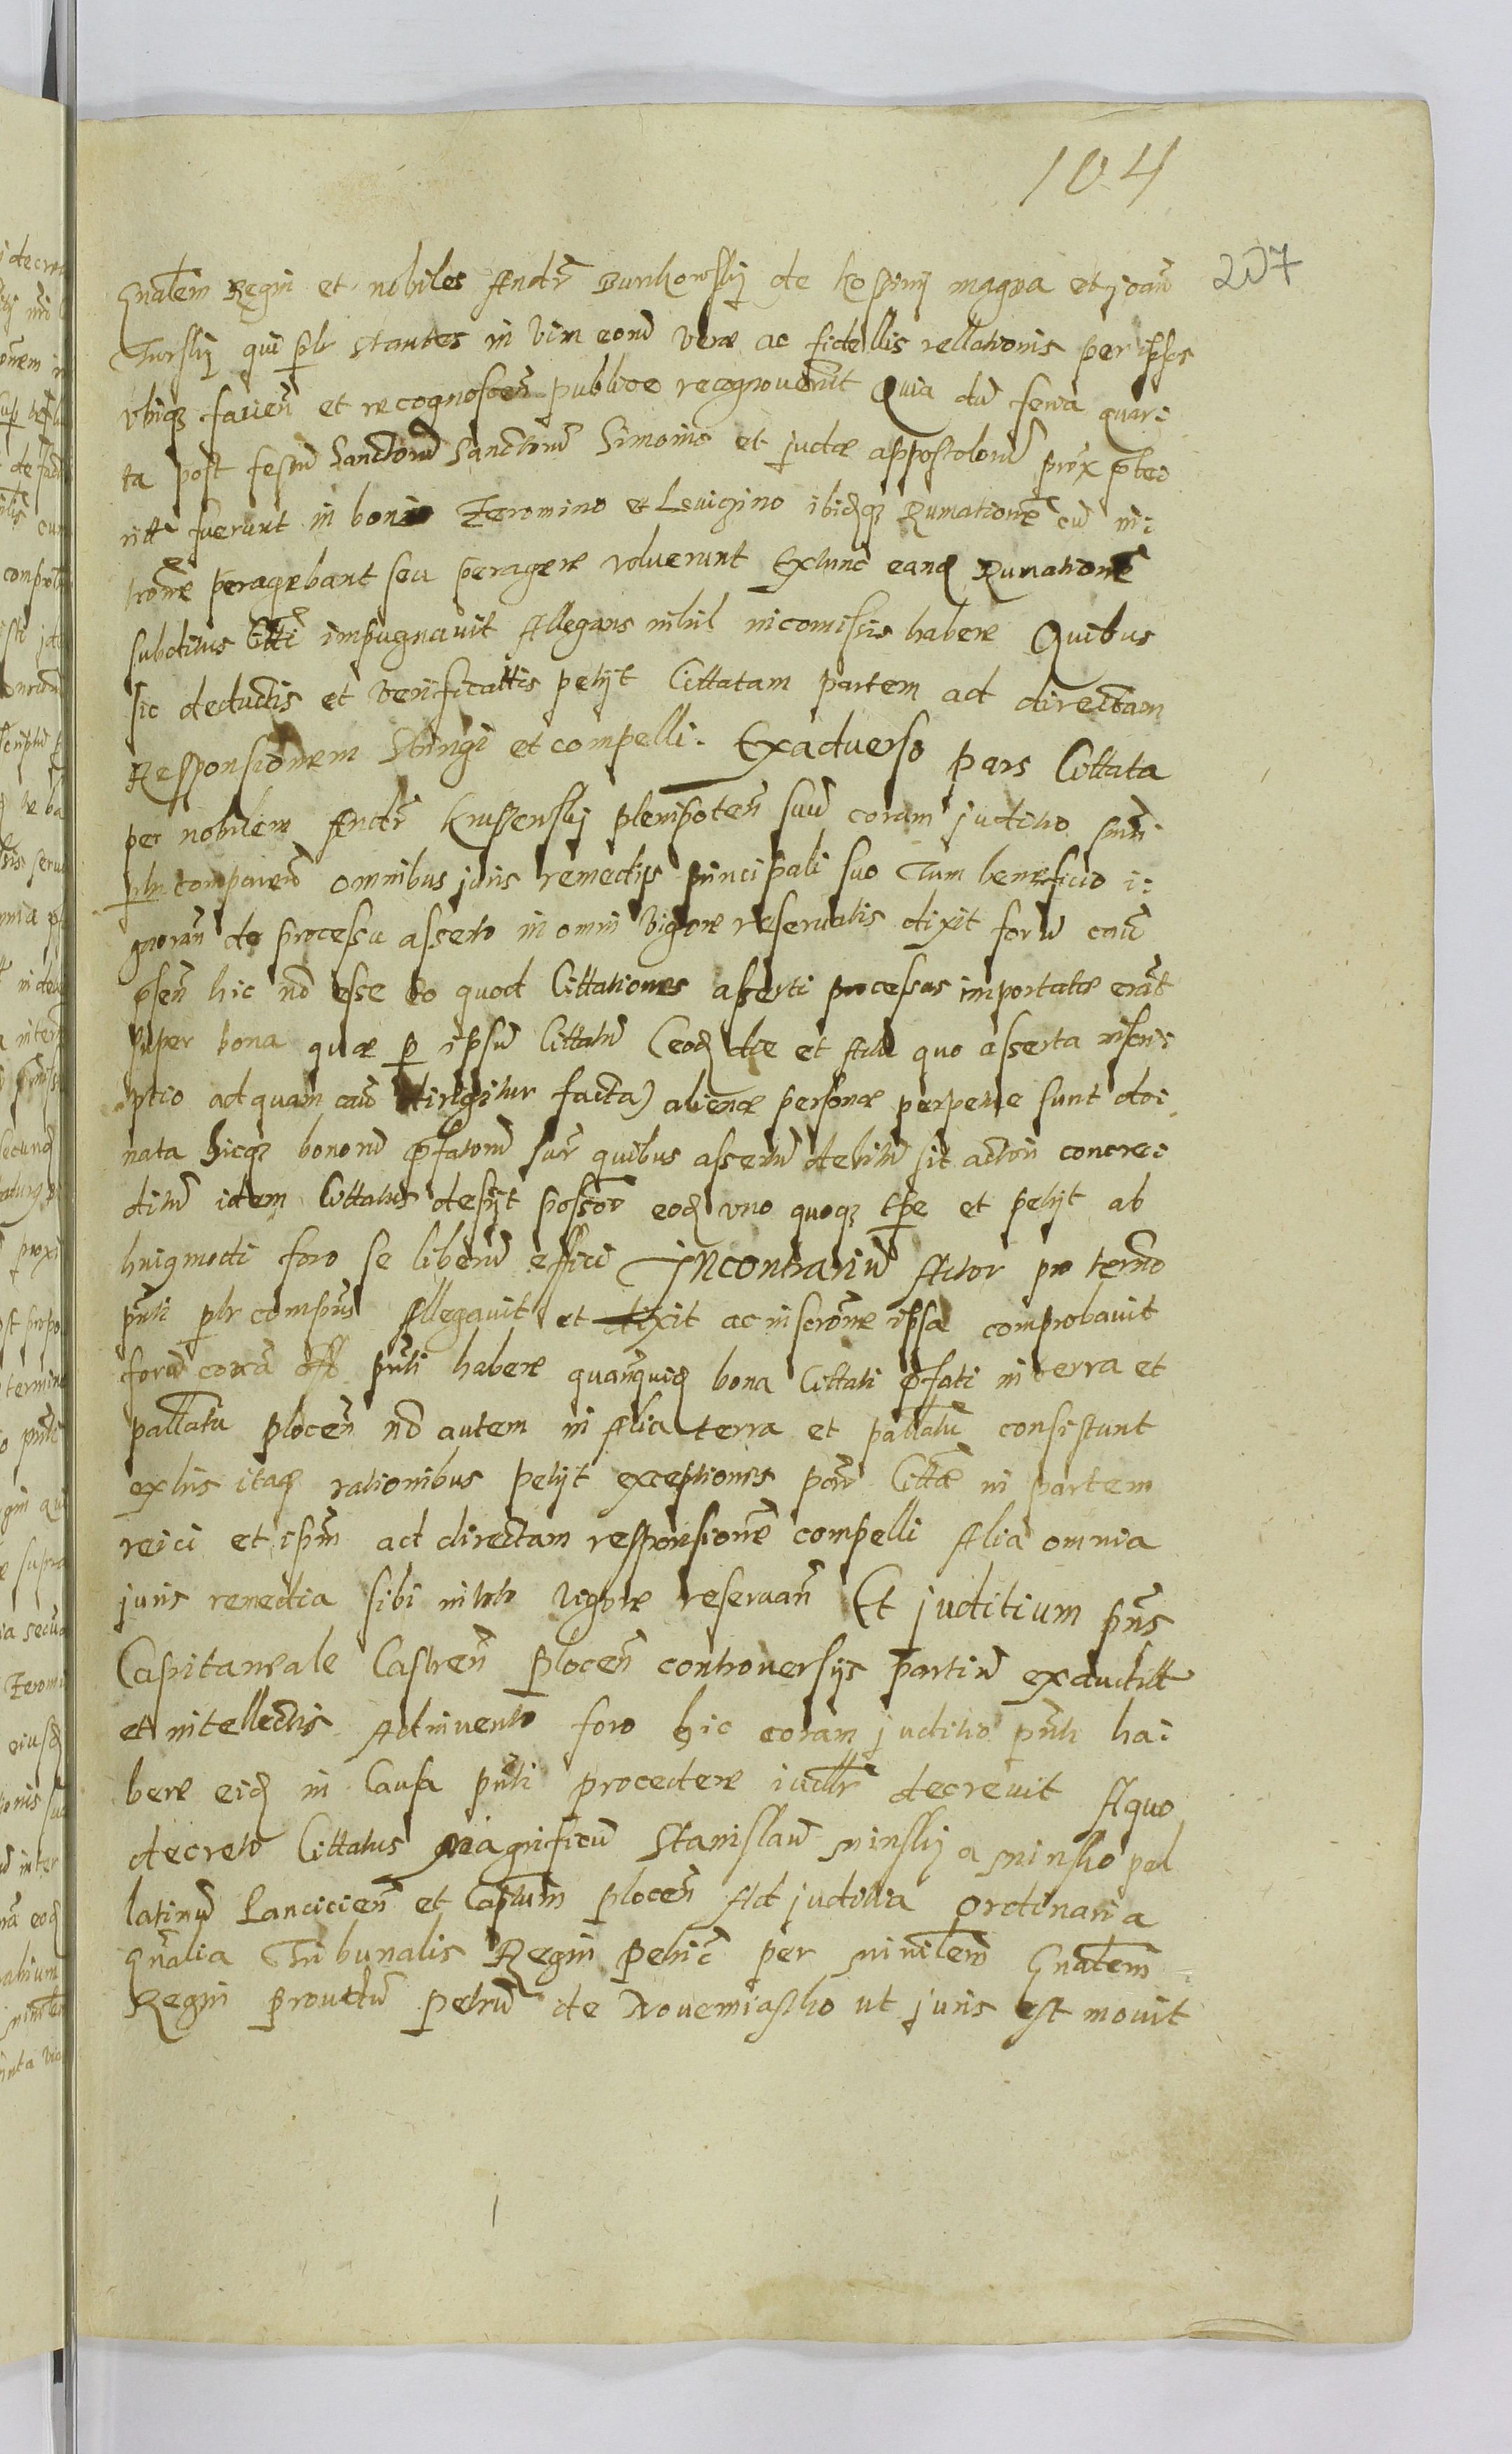 104
207
Gnalem Regni et nobiles Andr Burkowskij de Kossinij magna et joan
Turskij qui plr stantes in vim eorũ veræ ac fidellis rellationis per ipsos
vbiqz facien et recognoscen publice recognoverũt Quia dũ feria quar:
ta post festũ Sanctorũ Sanctorũ Simonis et judæ appostolorũ prox pte:
ritt fuerunt in bonis Zeromino et Levigino ibidqz Rumationẽ cũ in:
tronẽ peragebant seu peragere voluerunt Extunc eand Rumationẽ
subditus Citti impugnavit Allegans nihil incomissis habere Quibus
sic deductis et verificattis petijt Cittatam partem ad directam
Responsionem Stringi et compelli. Exadverso pars Cittata
per nobilem Andr Krussenskij plenipoten suũ coram juditio
plr comparen omnibus juris remedijs principali suo Tum beneficio i:
gnoran de processu asserto in omni vigore reservatis dixit forũ causæ
psen hic nõ esse Eo quod Cittationes asserti processus importatæ erãt
super bona quæ p ipsũ Cittatũ (eod die et Actu quo asserta inscri:
ptio ad quam caũ dirigitur facta) alienæ personæ perpetue sunt do:
nata hicqz bonorũ pfatorũ supr quibus assertũ debitũ sit actori concre:
ditũ idem Cittatus desijt possor eod vno quoqz tpe et petijt ab
huigmodi foro se liberũ effici Jncontrariũ Actor pro termo
pnti plr comprns Allegavit et dixit ac inscronẽ ipsa comprobavit
forũ corã offo pnti habere quanquid bona Cittati pfati in terra et
pallatu plocen nõ autem in Alia terra et pallatu consistunt
exhis itaqz rationibus petijt exceptiones part Cittæ in partem
reici et ipm ad directam responsionẽ compelli Alia omnia
juris remedia sibi in toto vigore reservan Et juditium pns
Capitaneale Castren Plocen controversijs partiũ exauditt
et intellectis Adinvento foro hic coram juditio pnti ha:
bere eid in Causa pnti procedere judlr decrevit Aquo
decreto Cittatus Magnificũ Stanislaũ Minskij a Minsko pal
latinũ Lancicien et Captum plocen Ad juditia Ordinaria
Gnalia Tribunalis Regni Petric per ministm Gnalem
Regni prouidũ Petrũ de Novemiastho ut juris est movit